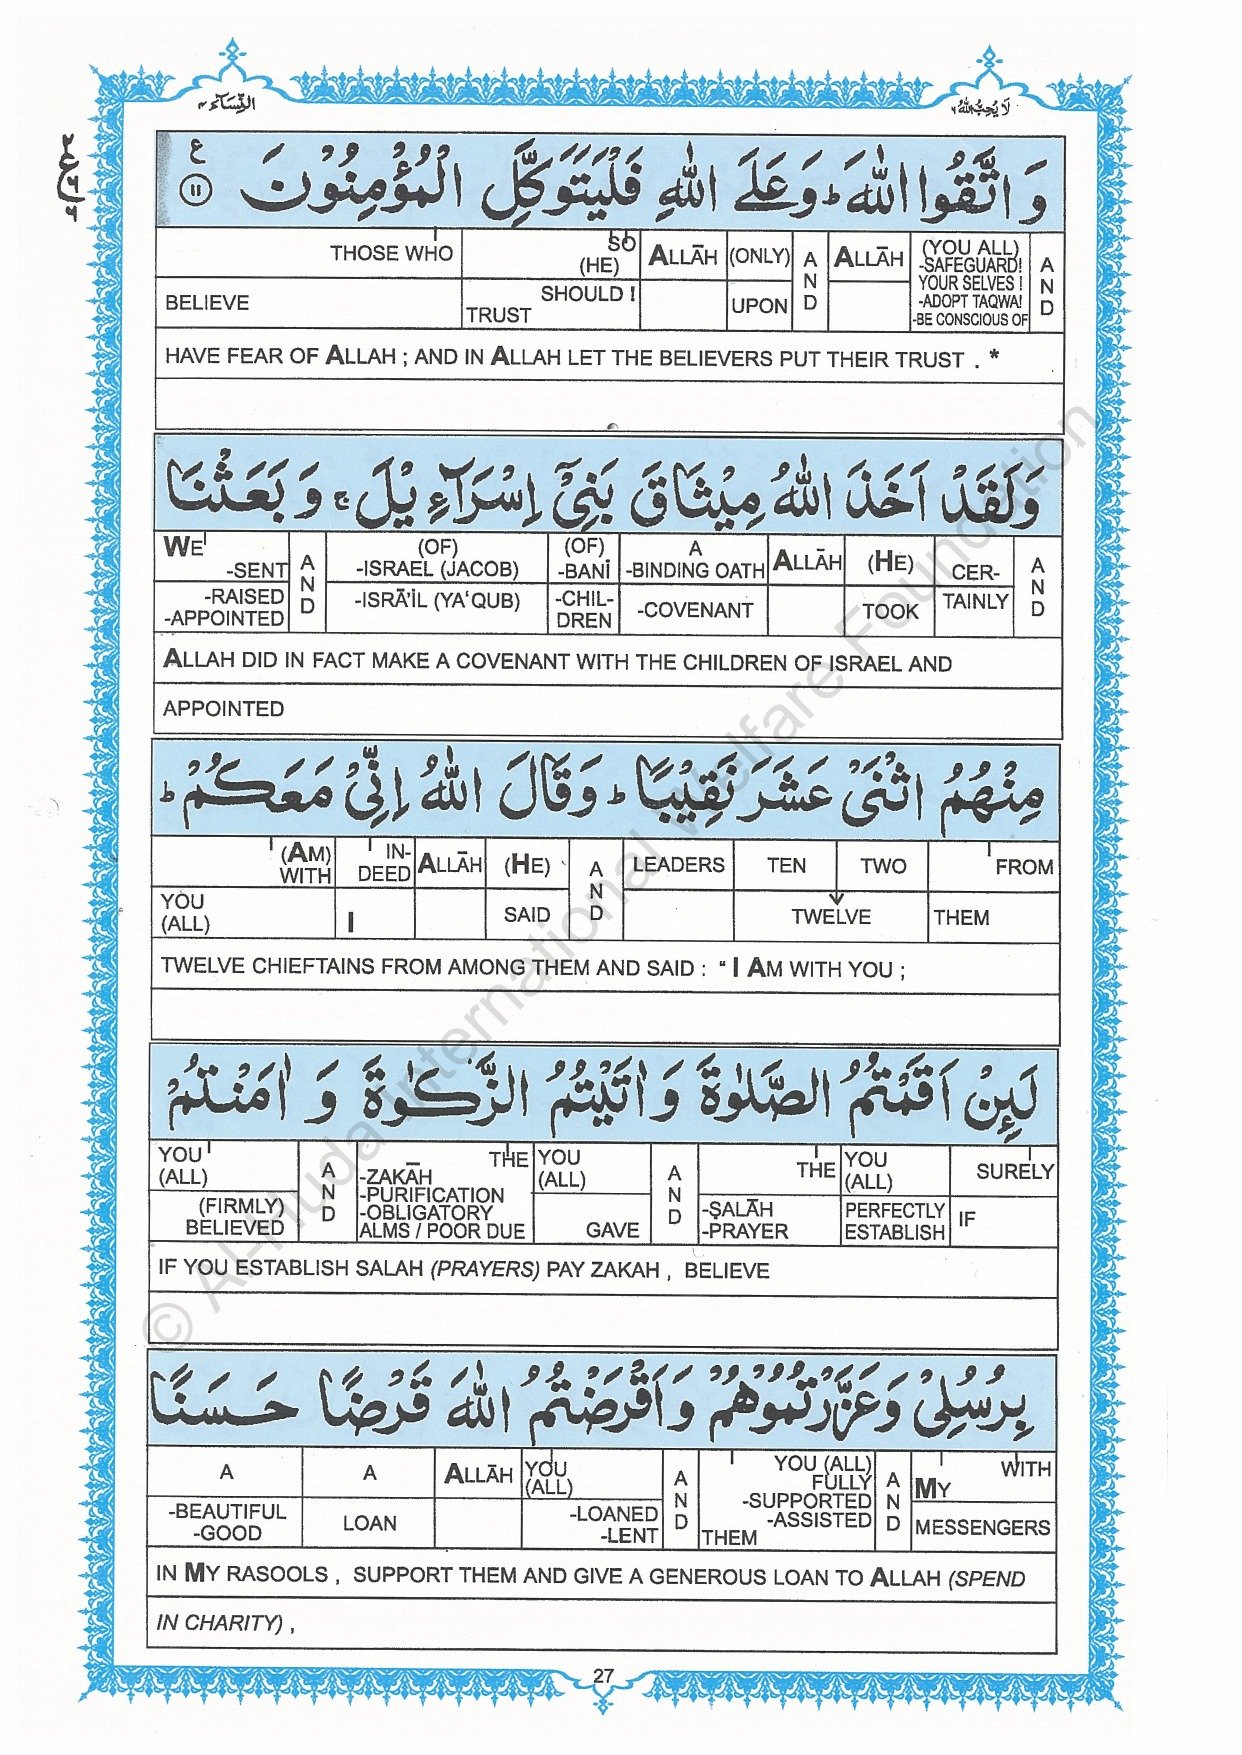 النِّسَآء ٤
لَا يُحِبُّ اللّٰهُ ٦
وَ اتَّقُوا اللّٰهَ ؕ وَ عَلَى اللّٰهِ فَلْيَتَوَكَّلِ الْمُؤْمِنُوْنَ ١١ ع
THOSE WHO SO (HE) ALLĀH (ONLY) AND ALLĀH (YOU ALL) AND
-SAFEGUARD!
YOUR SELVES !
-ADOPT TAQWA!
-BE CONSCIOUS OF
BELIEVE SHOULD ! TRUST UPON
HAVE FEAR OF ALLAH ; AND IN ALLAH LET THE BELIEVERS PUT THEIR TRUST . *
وَ لَقَدْ اَخَذَ اللّٰهُ مِيْثَاقَ بَنِيْۤ اِسْرَآءِيْلَ ۚ وَ بَعَثْنَا
WE -SENT AND (OF) -ISRAEL (JACOB) (OF) -BANĪ A -BINDING OATH ALLĀH (HE) CER- AND
-RAISED -APPOINTED -ISRĀ'ĪL (YA‘QUB) -CHIL-DREN -COVENANT TOOK TAINLY
ALLAH DID IN FACT MAKE A COVENANT WITH THE CHILDREN OF ISRAEL AND
APPOINTED
مِنْهُمُ اثْنَيْ عَشَرَ نَقِيْبًا ؕ وَ قَالَ اللّٰهُ اِنِّيْ مَعَكُمْ ؕ
(AM) WITH IN-DEED ALLĀH (HE) AND LEADERS TEN TWO FROM
YOU (ALL) I SAID TWELVE THEM
TWELVE CHIEFTAINS FROM AMONG THEM AND SAID : “ I AM WITH YOU ;
لَئِنْ اَقَمْتُمُ الصَّلٰوةَ وَ اٰتَيْتُمُ الزَّكٰوةَ وَ اٰمَنْتُمْ
YOU (ALL) AND THE YOU (ALL) AND THE YOU (ALL) SURELY
(FIRMLY) BELIEVED -ZAKĀH -PURIFICATION -OBLIGATORY ALMS / POOR DUE GAVE -ṢALĀH -PRAYER PERFECTLY ESTABLISH IF
IF YOU ESTABLISH SALAH (PRAYERS) PAY ZAKAH , BELIEVE
بِرُسُلِيْ وَ عَزَّرْتُمُوْهُمْ وَ اَقْرَضْتُمُ اللّٰهَ قَرْضًا حَسَنًا
A A ALLĀH YOU (ALL) AND YOU (ALL) FULLY -SUPPORTED -ASSISTED AND MY WITH
-BEAUTIFUL -GOOD LOAN -LOANED -LENT THEM MESSENGERS
IN MY RASOOLS , SUPPORT THEM AND GIVE A GENEROUS LOAN TO ALLAH (SPEND
IN CHARITY) ,
27
© Al-Huda International Welfare Foundation